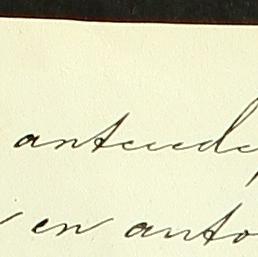 anteced
en anto